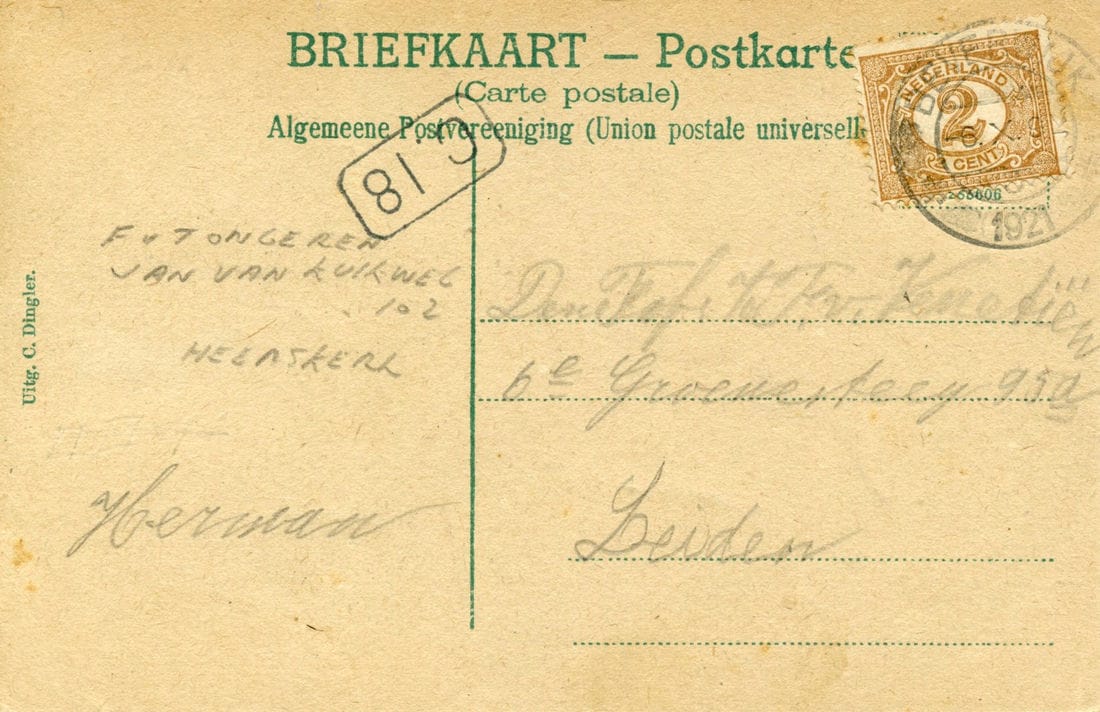 BRIEFKAART — Postkarte
(Carte postale)
Algemeene Postvereeniging (Union postale universell
NEDERLAND
2
CENT
1921
266606
C.18
F v TONGEREN
VAN VAN KUIKWEG
102
HEEMSKERK
Uitg. C. Dingler.
Den
6e Groenesteeg 95a
Herman
Leiden